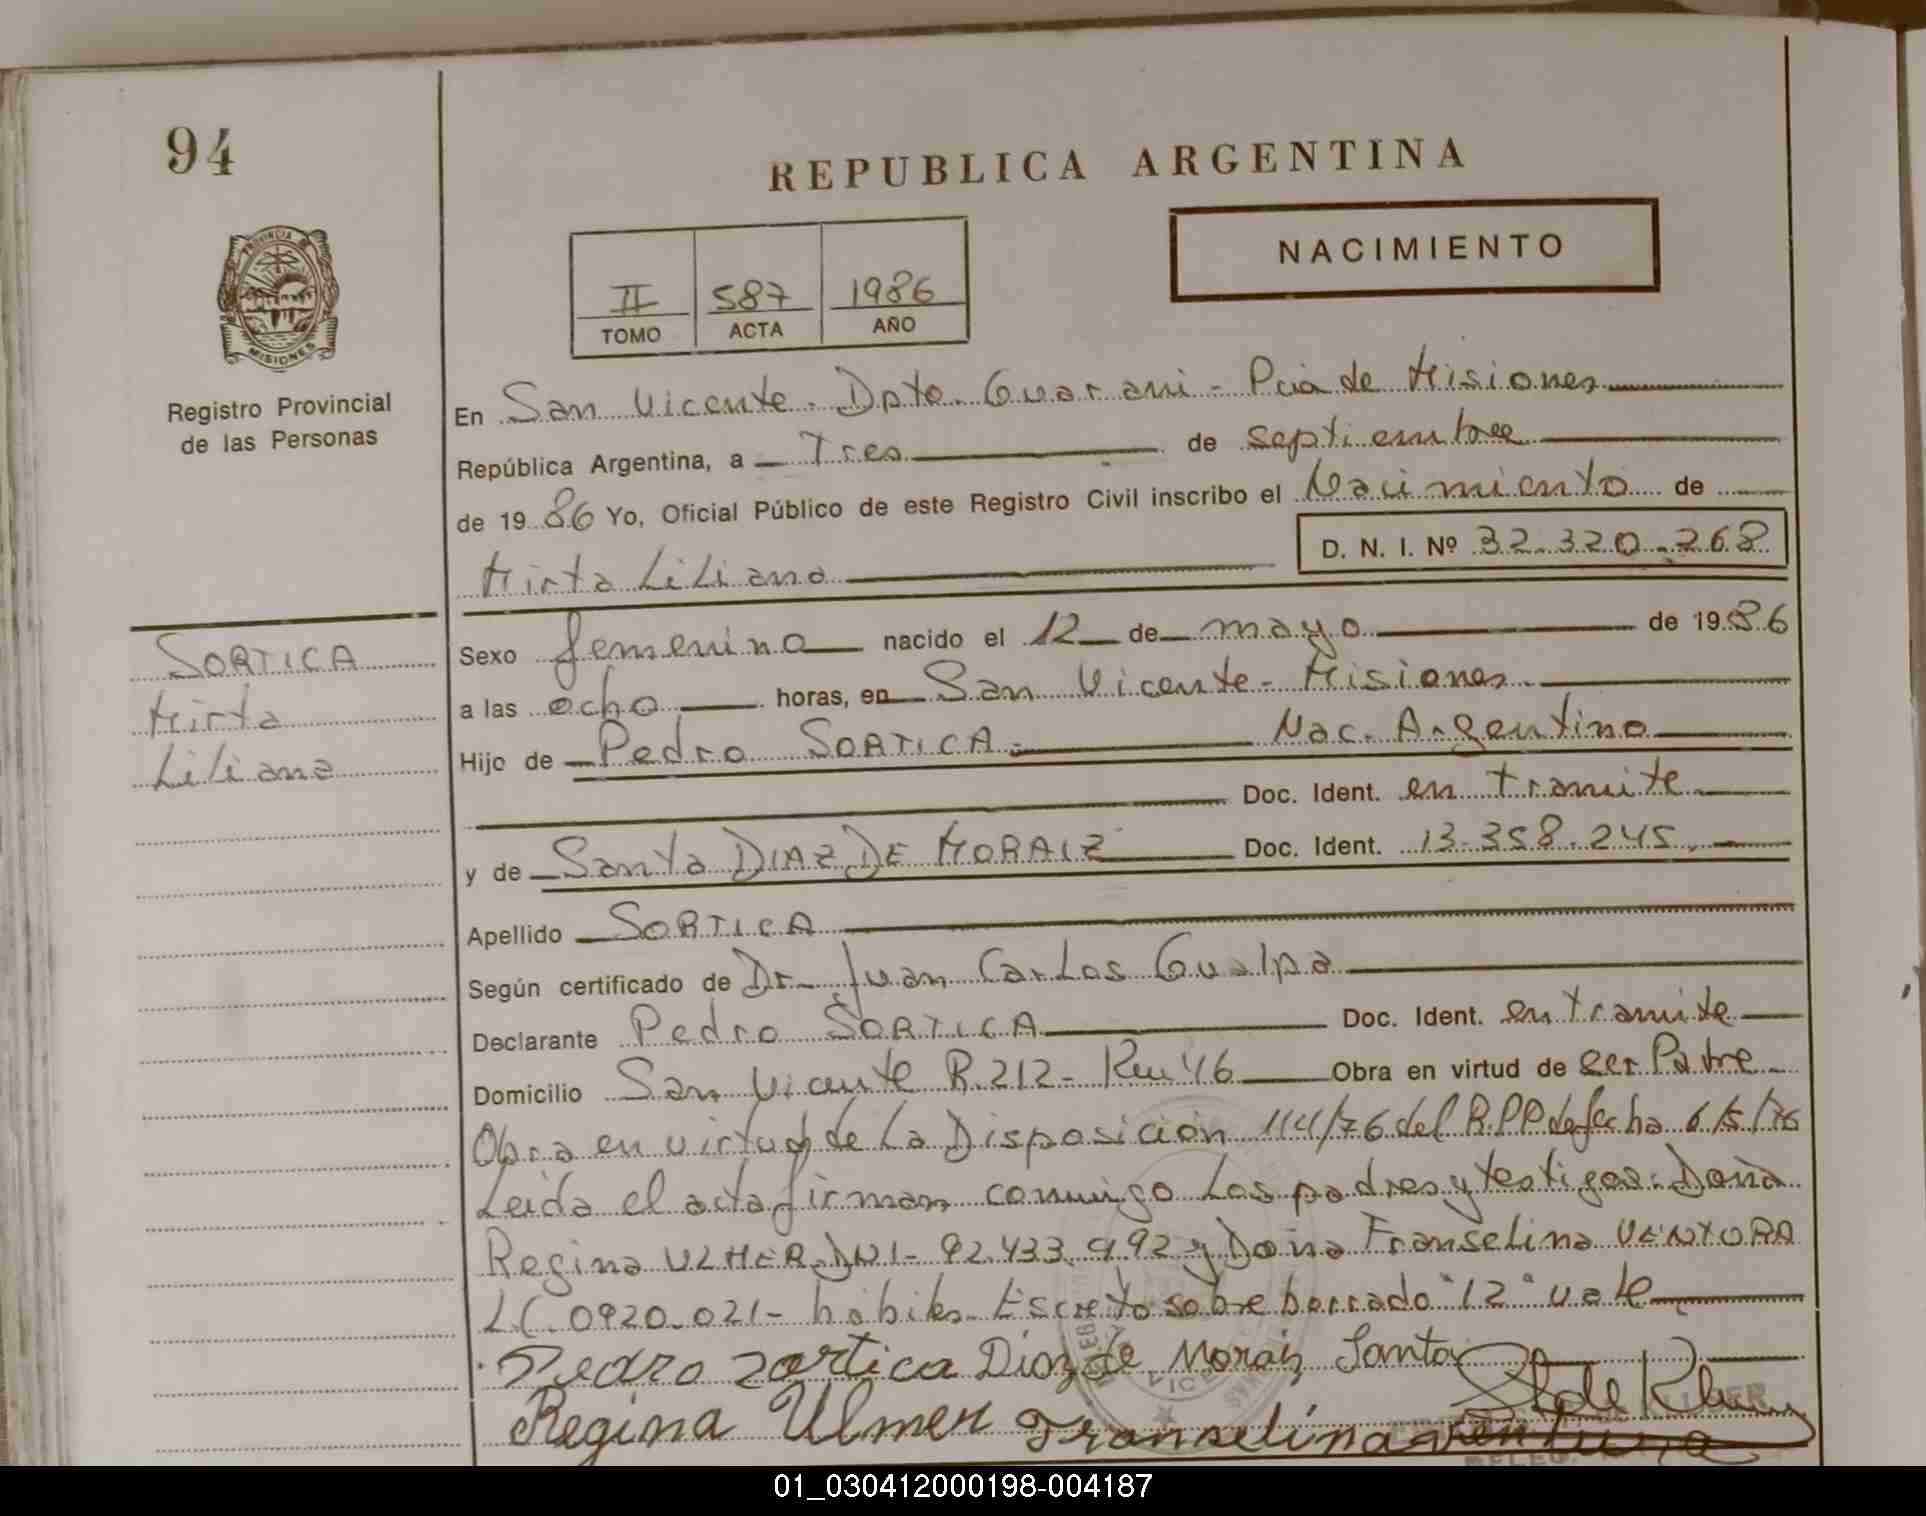 94
REPUBLICA ARGENTINA
NACIMIENTO
II 587 1986
TOMO ACTA AÑO
PROVINCIA DE
MISIONES
Registro Provincial
de las Personas
En San Vicente. Dpto. Guarani - Pcia de Misiones
República Argentina, a Tres de septiembre
de 1986 Yo, Oficial Público de este Registro Civil inscribo el Nacimiento de
D. N. I. Nº 32.320.268
Mirta Liliana
SORTICA
Mirta
Liliana
Sexo femenino nacido el 12 de mayo de 1986
a las ocho horas, en San Vicente - Misiones.
Hijo de Pedro SORTICA Nac. Argentino
Doc. Ident. en tramite
y de Santa DIAZ DE MORAIZ Doc. Ident. 13.358.245
Apellido SORTICA
Según certificado de Dr. Juan Carlos Gualpa
Declarante Pedro SORTICA Doc. Ident. en tramite
Domicilio San Vicente R.212- Km 46 Obra en virtud de ser Padre
Obra en virtud de La Disposicion 114/76 del R.P.P de fecha 6/5/76
Leida el acta firman conmigo Los padres y testigos: Doña
Regina ULMER DNI- 92.433.992 y Doña Franselina VENTORA
LC. 0920.021- habiles. Escrito sobre borrado "12" vale
Pedro Zortica Diaz de Moraiz Santa
Regina Ulmer Franselina ventura
01_030412000198-004187